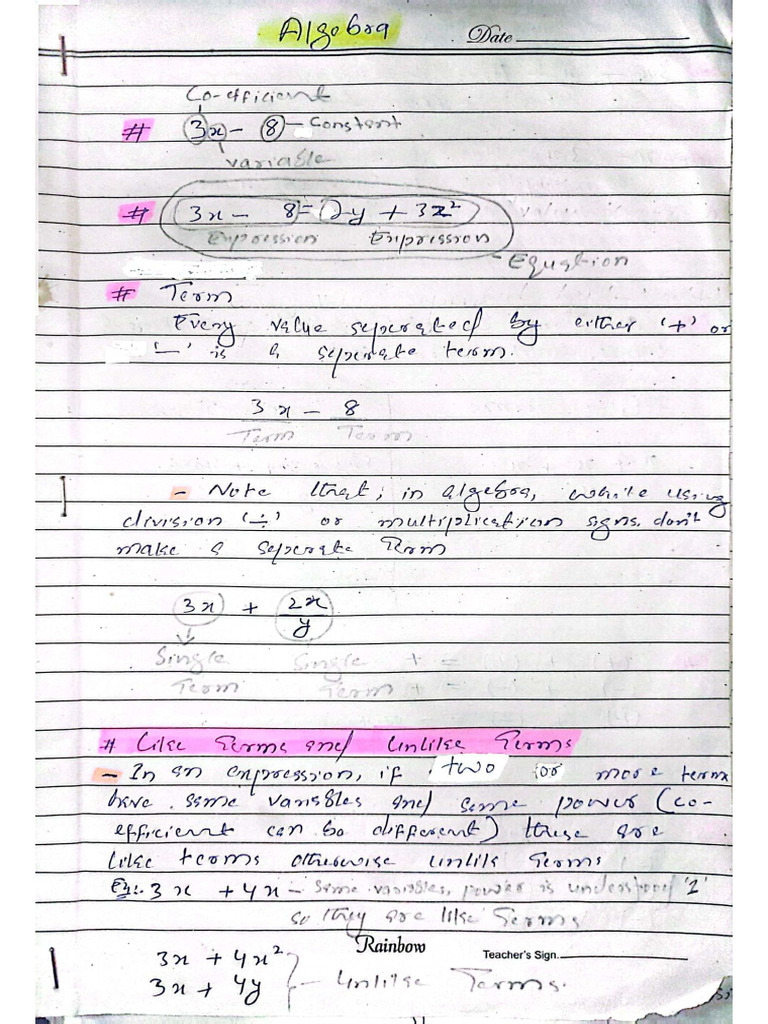 Algebra Date
Co-efficient
# 3x - 8 - Constant
variable
# 3x - 8 = 2y + 3z²
Expression Expression
- Equation
# Term
Every value seperated by either '+' or
'-' is a seperate term.
3x - 8
Term Term
- Note that; in algebra, while using
division '÷' or multiplication signs, don't
make a seperate term
3x + 2x/y
Single Single + =
Term Term + =
# Like Terms and Unlike Terms
- In an expression, if two or more term
have same variables and same power (co-
efficient can be different) these are
like terms otherwise unlike Terms
Ex:- 3x + 4x - Same variables, power is understood '1'
so they are like Terms
Rainbow Teacher's Sign.
3x + 4x²
3x + 4y } - Unlike Terms.